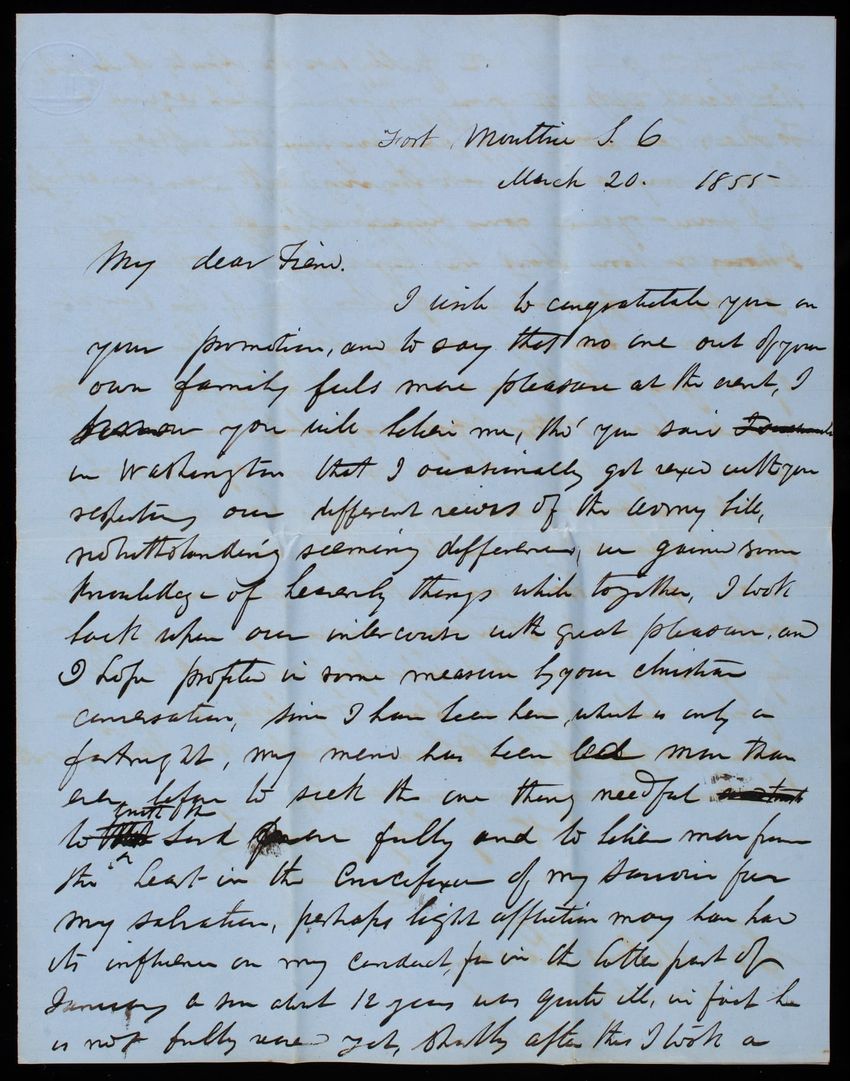 Fort Moultrie S. C
March 20. 1855
My dear Friend.
I wish to congratulate you on
your promotion, and to say that no one out of your
own family feels more pleasure at the event, I
you will believe me, tho' you said
in Washington that I occasionally got vexed with you
respecting our different views of the Army bill,
notwithstanding seeming differences, we gained some
knowledge of heavenly things while together, I look
back upon our intercourse with great pleasure, and
I hope profited in some measure by your christian
conversation, since I have been here, which is only a
fortnight, my mind has been led more than
ever before to seek the one thing needful
to the Lord more fully and to believe more from
the heart in the Crucifixion of my Saviour for
my salvation, perhaps light affliction may have had
its influence on my conduct, for in the latter part of
January a son about 12 years was quite ill, in fact he
is not fully well yet, Shortly after this I took a